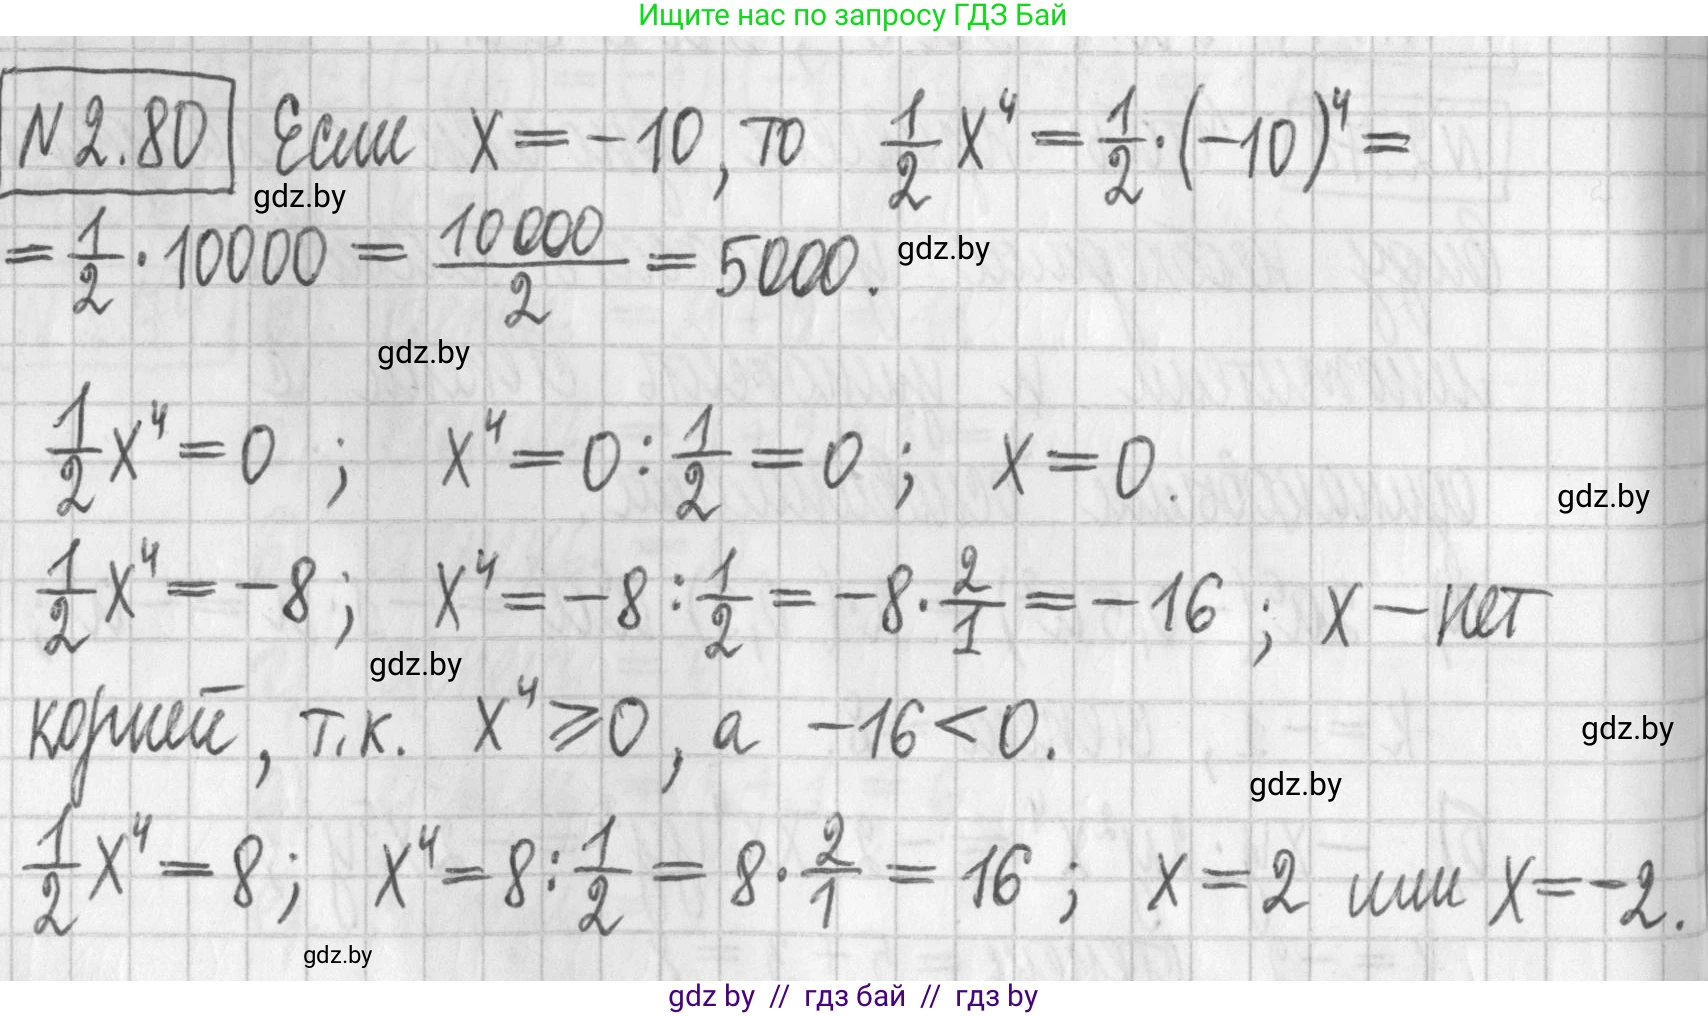 Ищите нас по запросу ГДЗ Бай
N 2.80 Если x = -10, то 1/2 x⁴ = 1/2 · (-10)⁴ =
gdz.by
= 1/2 · 10000 = 10000/2 = 5000.
gdz.by
gdz.by
1/2 x⁴ = 0 ; x⁴ = 0 : 1/2 = 0 ; x = 0.
gdz.by
1/2 x⁴ = -8 ; x⁴ = -8 : 1/2 = -8 · 2/1 = -16 ; x — нет
gdz.by
корней, т.к. x⁴ ⩾ 0, а -16 < 0.
gdz.by
gdz.by
1/2 x⁴ = 8 ; x⁴ = 8 : 1/2 = 8 · 2/1 = 16 ; x = 2 или x = -2.
gdz.by
gdz by // гдз бай // гдз by